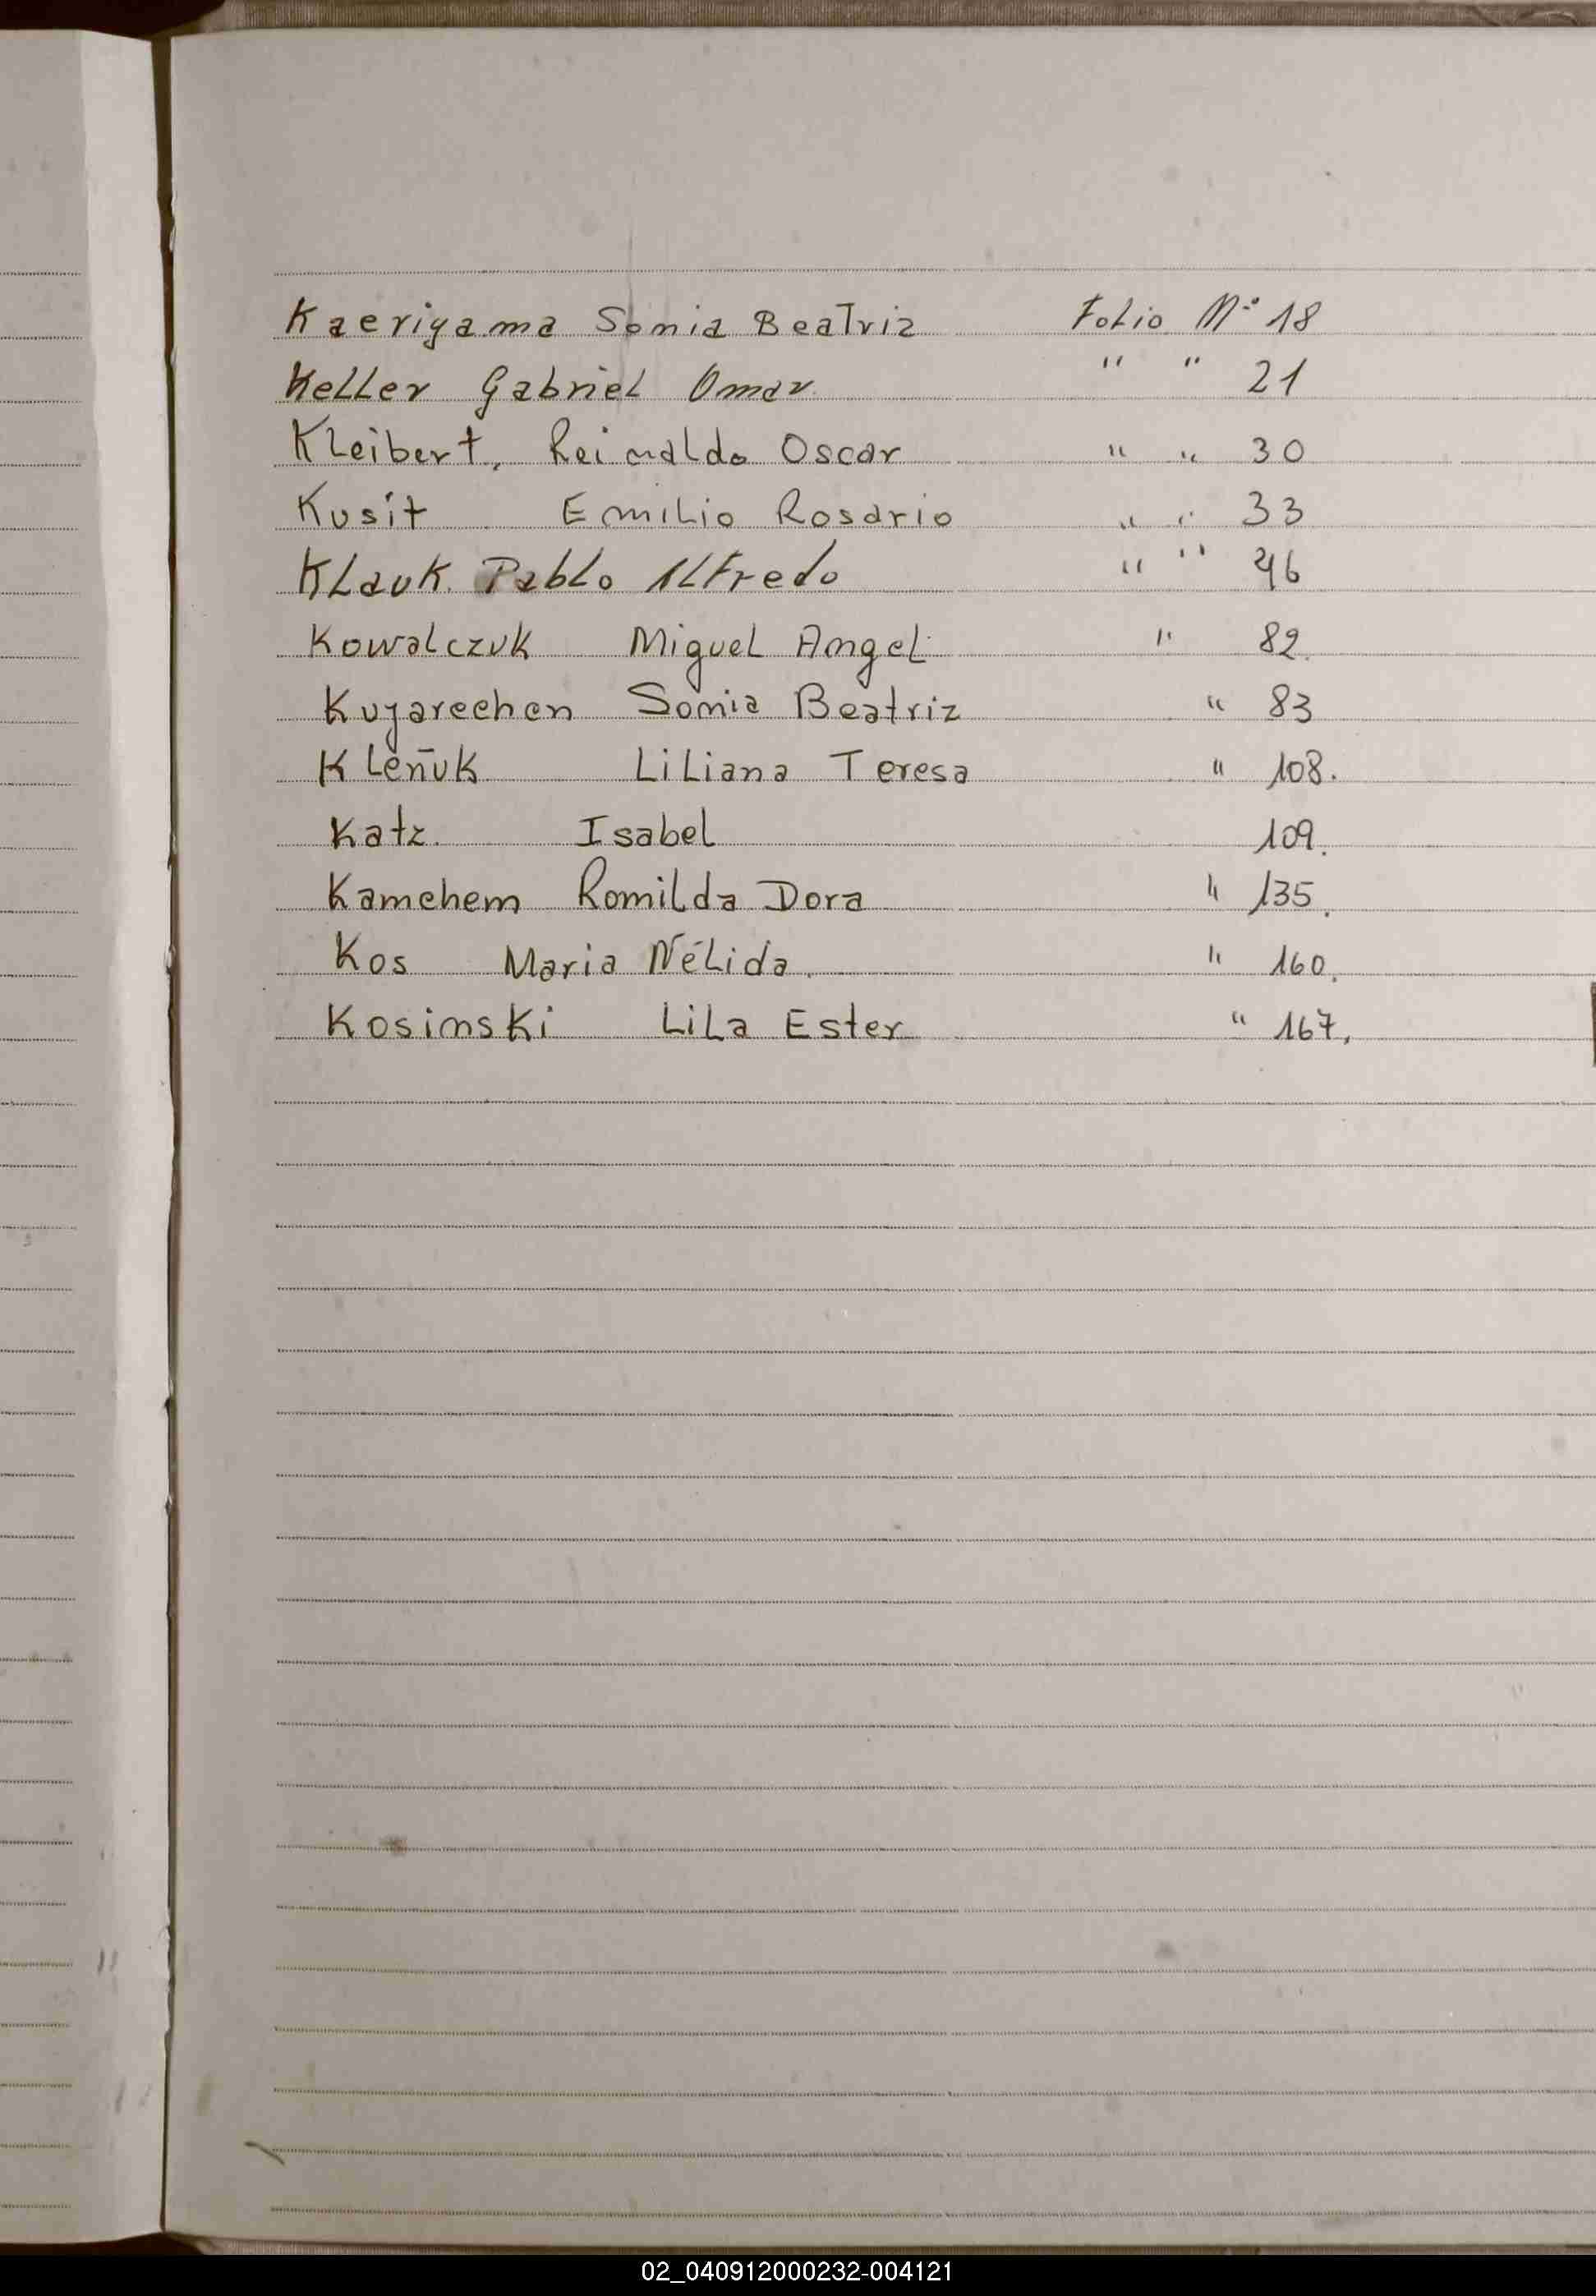 Kaeriyama Sonia Beatriz Folio Nº 18
Keller Gabriel Omar " " 21
Kleibert, Reinaldo Oscar " " 30
Kusit Emilio Rosario " " 33
Klauk. Pablo Alfredo " " 46
Kowalczuk Miguel Angel " 82.
Kuyarechen Sonia Beatriz " 83
Kleñuk Liliana Teresa " 108.
Katz. Isabel 109.
Kamehem Romilda Dora " 135.
Kos Maria Nélida. " 160.
Kosinski Lila Ester " 167.
02_040912000232-004121